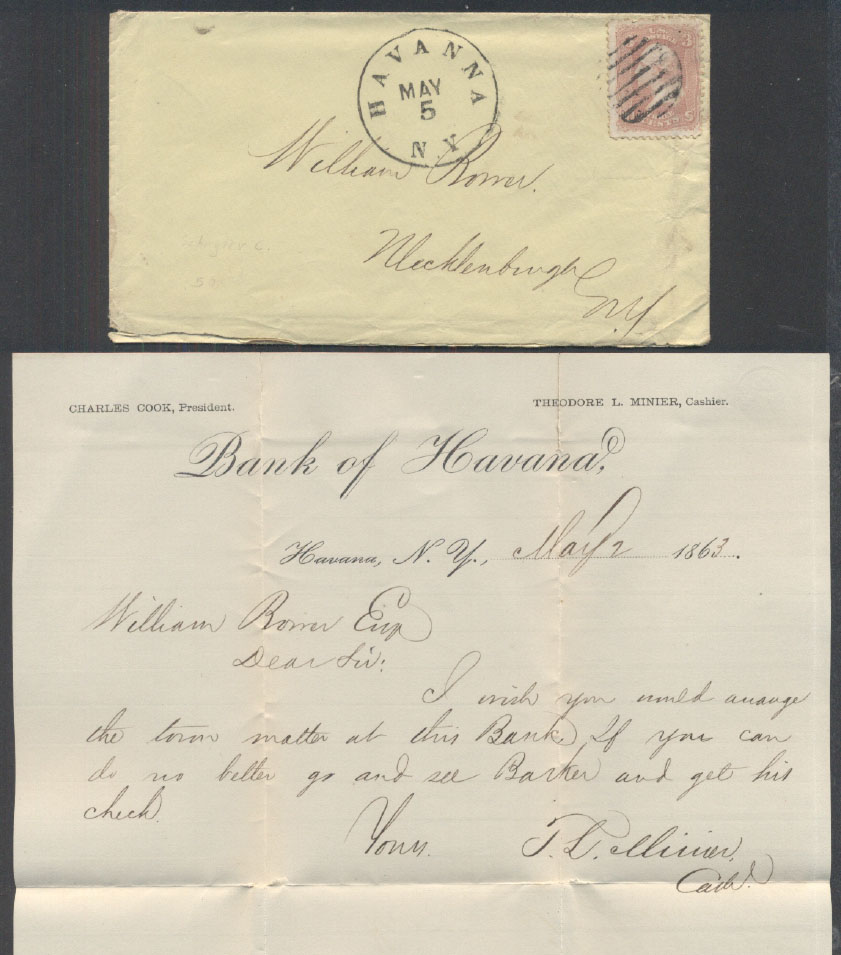 HAVANNA
MAY
5
N Y
3
CENTS
William Rower.
Mecklenburgh
N.Y.
CHARLES COOK, President.
THEODORE L. MINIER, Cashier.
Bank of Havana,
Havana, N. Y., May 2 1863.
William Rower Esqr
Dear Sir:
I wish you would arrange
the town matter at this Bank, If you can
do no better go and see Barker and get his
check.
Yours.
T. L. Minier,
Cash.